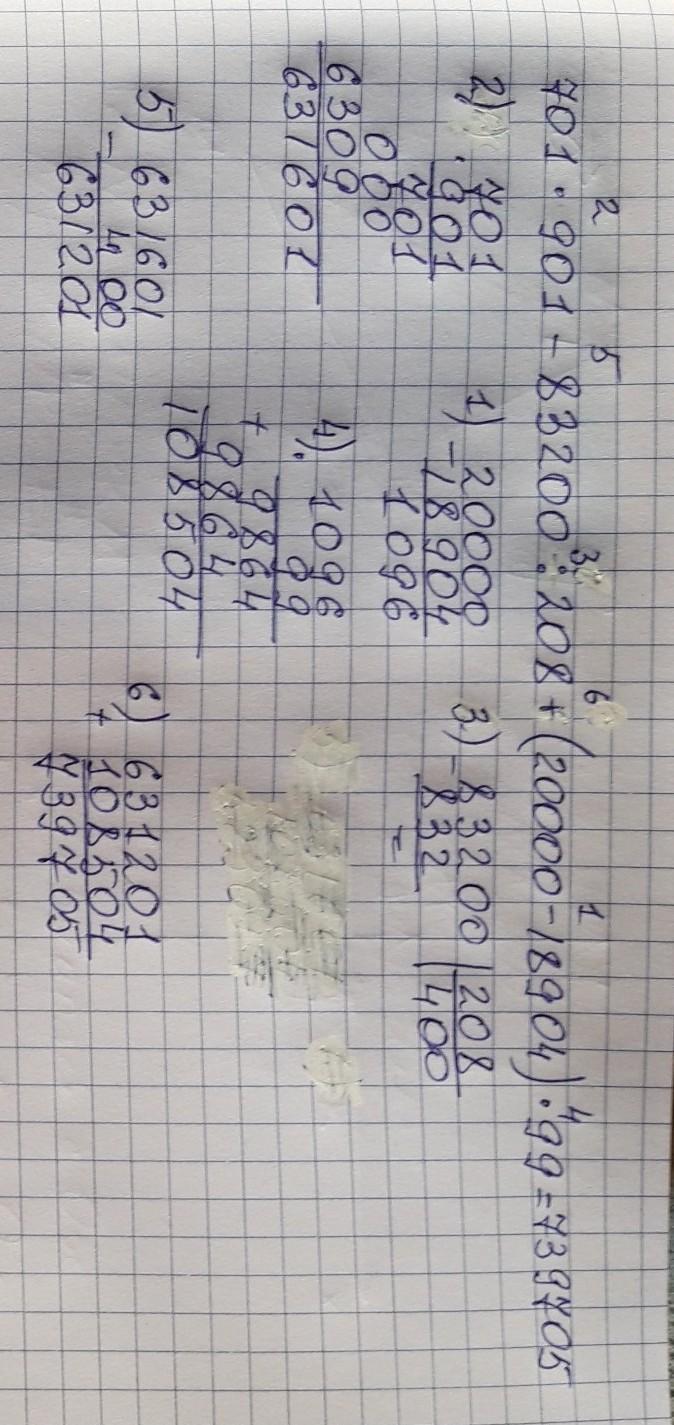 2 5 3 6 1 4
701 · 901 - 83200 : 208 + (20000 - 18904) · 99 = 739705
2) 701
· 901
701
000
6309
631601
1) 20000
- 18904
1096
3) - 83200 | 208
832 400
=
4) · 1096
99
9864
+ 9864
108504
5) 631601
- 400
631201
6) 631201
+ 108504
739705